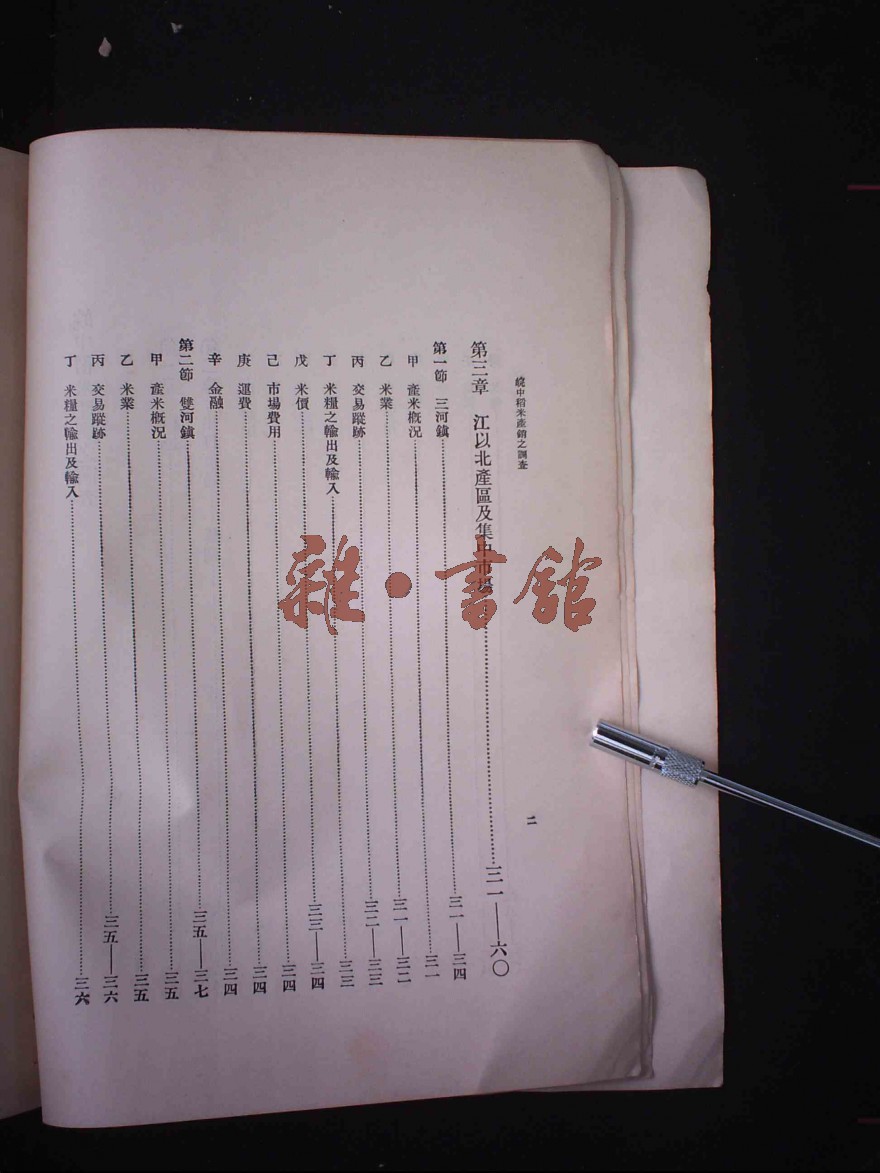 皖中稻米產銷之調查 二
第三章 江以北產區及集中市場……三一——六〇
第一節 三河鎮……三一——三四
甲 產米概況……三一
乙 米業……三一——三二
丙 交易蹤跡……三二——三三
丁 米糧之輸出及輸入……三三
戊 米價……三三——三四
己 市場費用……三四
庚 運費……三四
辛 金融……三四
第二節 雙河鎮……三五——三七
甲 產米概況……三五
乙 米業……三五
丙 交易蹤跡……三五——三六
丁 米糧之輸出及輸入……三六
雜·書舘